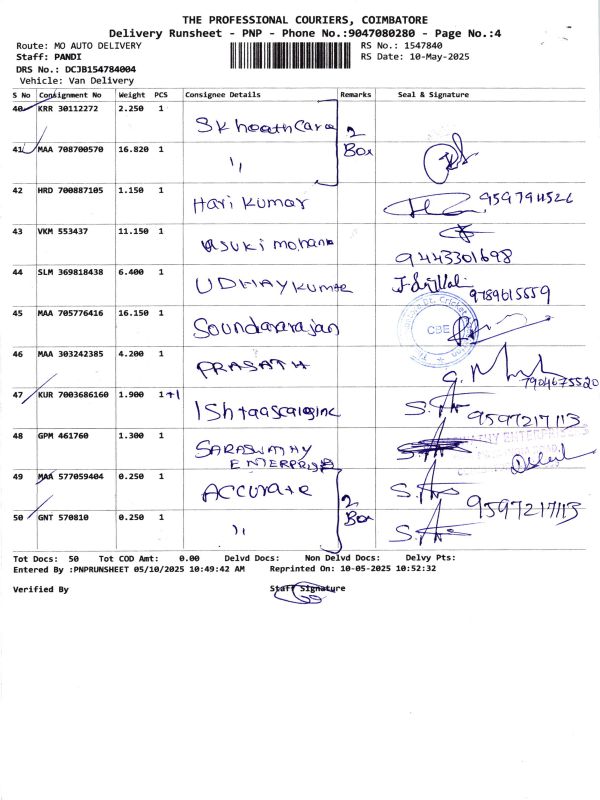 THE PROFESSIONAL COURIERS, COIMBATORE
Delivery Runsheet - PNP - Phone No.:9047080280 - Page No.:4
Route: MO AUTO DELIVERY
RS No.: 1547840
Staff: PANDI
RS Date: 10-May-2025
DRS No.: DCJB154784004
Vehicle: Van Delivery
S No Consignment No Weight PCS Consignee Details Remarks Seal & Signature
40 KRR 30112272 2.250 1 Sk heath Care
2 Box
41 MAA 708700570 16.820 1 "
42 HRD 700887105 1.150 1 Hari Kumar
43 VKM 553437 11.150 1 mohana
9443301698
44 SLM 369818438 6.400 1 UDHAYKUMAR
9789615559
45 MAA 705776416 16.150 1 Soundararajan
CBE
46 MAA 303242385 4.200 1 PRASATH
7904675520
47 KUR 7003686160 1.900 1+1
9597217113
48 GPM 461760 1.300 1 SARASWATHY
ENTERPRISE
49 MAA 577059404 0.250 1 Accurate
2 Box
9597217113
50 GNT 570810 0.250 1 "
Tot Docs: 50 Tot COD Amt: 0.00 Delvd Docs: Non Delvd Docs: Delvy Pts:
Entered By :PNPRUNSHEET 05/10/2025 10:49:42 AM Reprinted On: 10-05-2025 10:52:32
Verified By Staff Signature